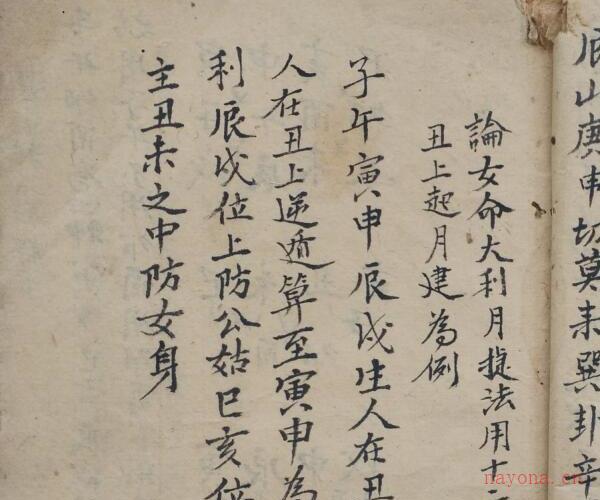 辰山庚申切莫未巽卦辛
論女命大利月捷法用十二
丑上起月建為例
子午寅申辰戌生人在丑
人在丑上逆遁算至寅申為
利辰戌位上防公姑巳亥位
主丑未之中防女身
nayona.cn